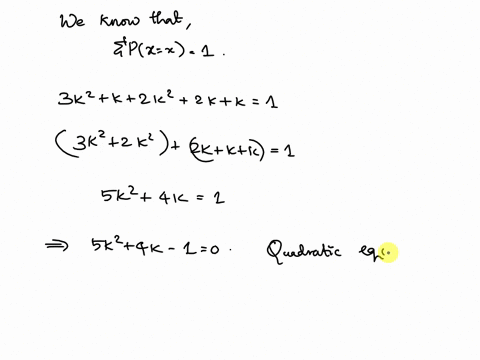 We know that,
ΣP(x=x)=1.
3k²+k+2k²+2k+k=1
(3k²+2k²)+(2k+k+k)=1
5k²+4k=1
⇒ 5k²+4k-1=0. Quadratic eqn.